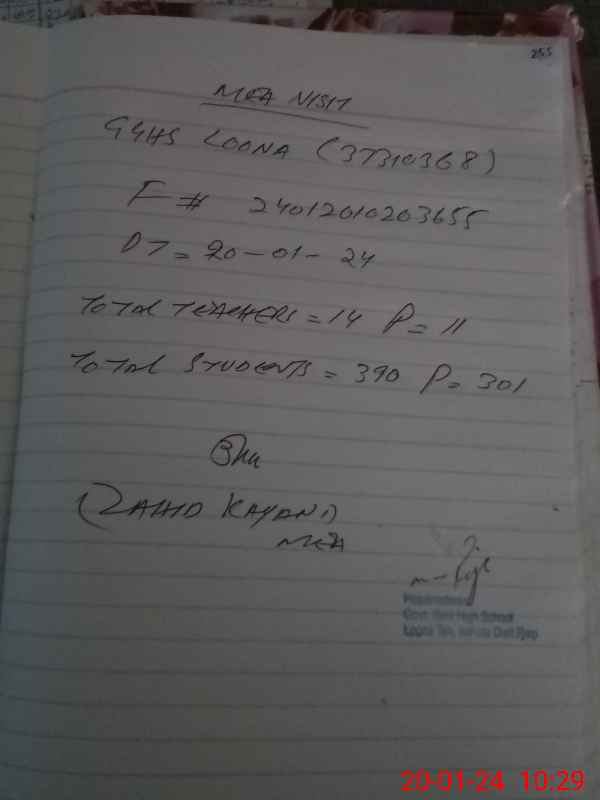 255
MEA VISIT
GGHS LOONA (37310368)
F # 24012010203655
DT = 20-01-24
Total TEACHERS = 14 P = 11
Total STUDENTS = 390 P = 301
(ZAHID KAYANI)
MEA
Headmistress
Govt. Girls High School
Loona Teh.
20-01-24 10:29